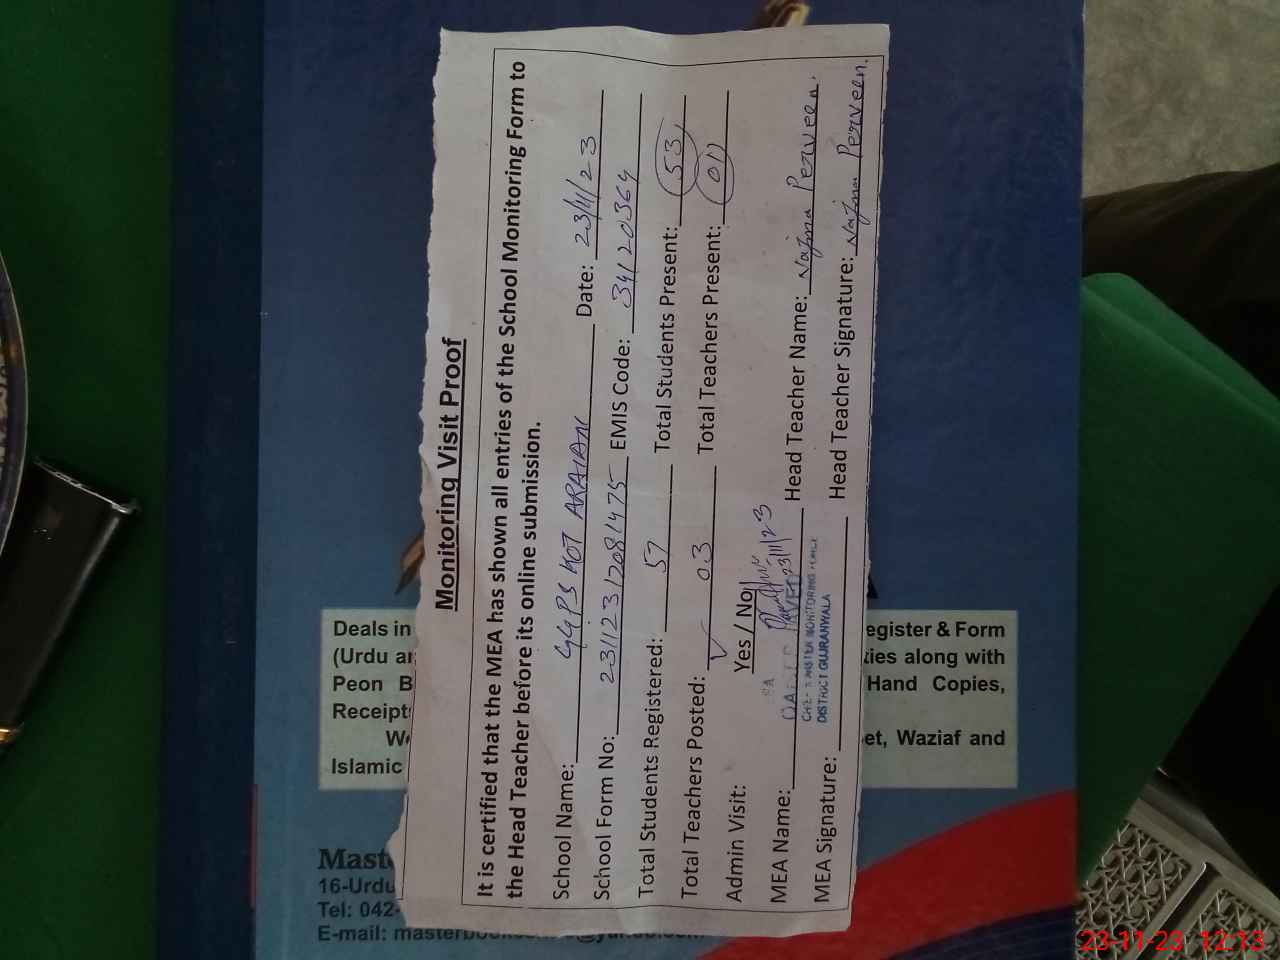 Monitoring Visit Proof
It is certified that the MEA has shown all entries of the School Monitoring Form to
the Head Teacher before its online submission.
School Name: GGPS KOT ARAIAN Date: 23/11/23
School Form No: 23112312081475 EMIS Code: 34120364
Total Students Registered: 57 Total Students Present: 53
Total Teachers Posted: 03 Total Teachers Present: 01
Admin Visit: Yes / No
23/11/23
MEA Name: Head Teacher Name: Najma Perveen.
MEA Signature: Head Teacher Signature: Najma Perveen.
MONITORING
DISTRICT GUJRANWALA
Deals in
(Urdu
Receipts
Islamic
egister & Form
along with
Hand Copies,
et, Waziaf and
16-Urdu
Tel: 042-
E-mail:
23-11-23 12:13